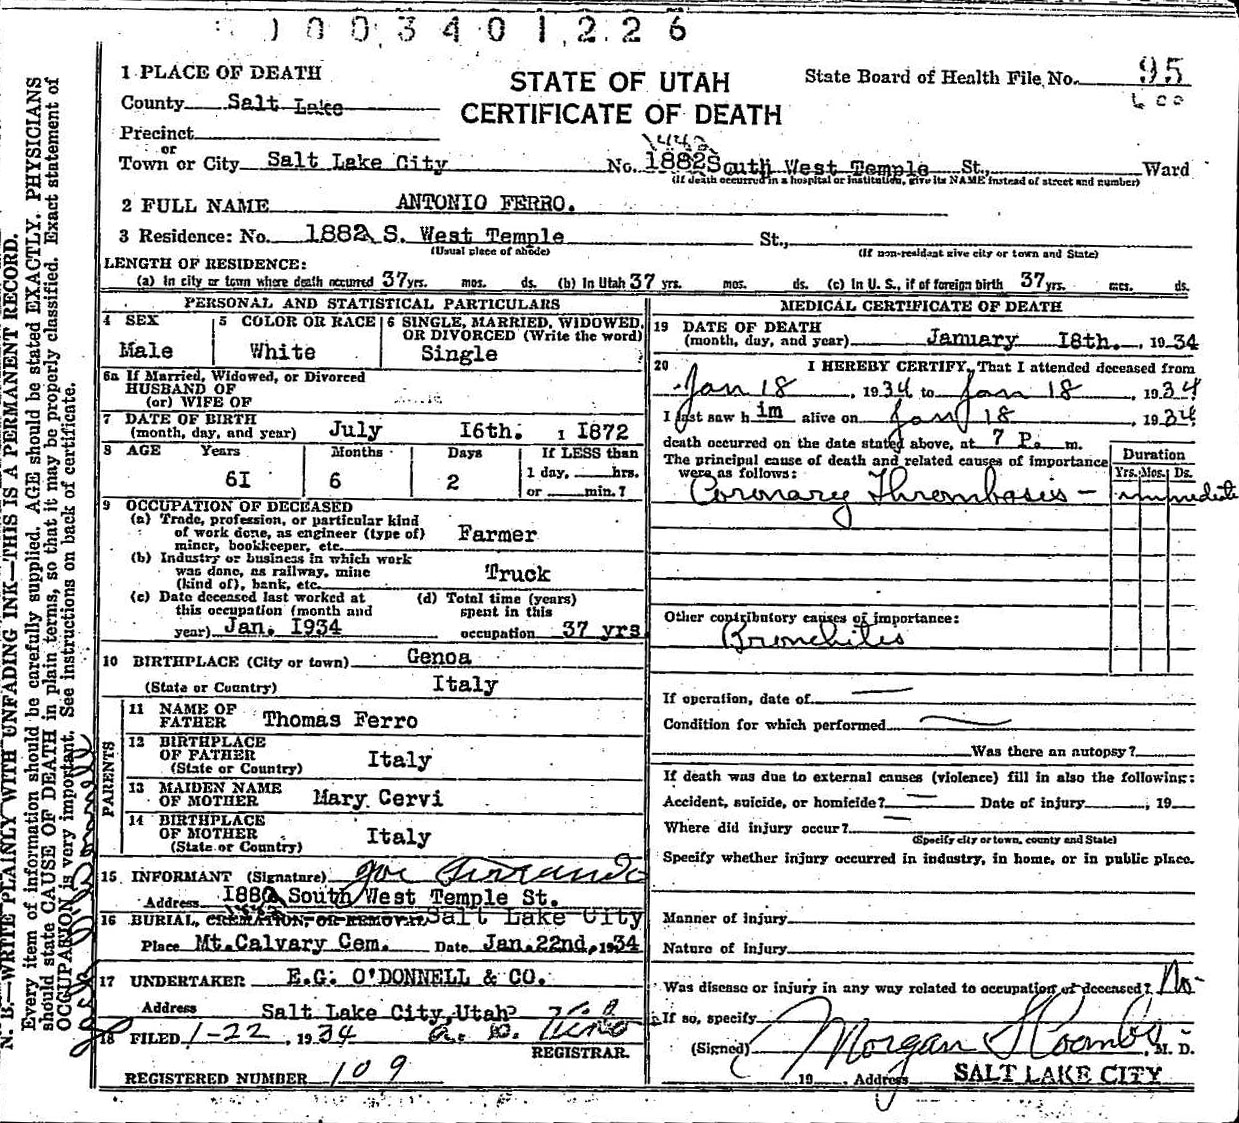 1003401226
1 PLACE OF DEATH
STATE OF UTAH
CERTIFICATE OF DEATH
State Board of Health File No. 95
County Salt Lake
Precinct
or
Town or City Salt Lake City No. 1882 South West Temple St., Ward
1442
(If death occurred in a hospital or institution, give its NAME instead of street and number)
2 FULL NAME ANTONIO FERRO.
3 Residence: No. 1882 S. West Temple St.,
(Usual place of abode) (If non-resident give city or town and State)
LENGTH OF RESIDENCE:
(a) In city or town where death occurred 37 yrs. mos. ds. (b) In Utah 37 yrs. mos. ds. (c) In U. S., if of foreign birth 37 yrs. mos. ds.
PERSONAL AND STATISTICAL PARTICULARS
4 SEX Male
5 COLOR OR RACE White
6 SINGLE, MARRIED, WIDOWED, OR DIVORCED (Write the word) Single
6a If Married, Widowed, or Divorced
HUSBAND OF
(or) WIFE OF
7 DATE OF BIRTH
(month, day, and year) July I6th. 1 I872
8 AGE Years Months Days If LESS than
6I 6 2 1 day, hrs.
or min.?
9 OCCUPATION OF DECEASED
(a) Trade, profession, or particular kind
of work done, as engineer (type of)
miner, bookkeeper, etc. Farmer
(b) Industry or business in which work
was done, as railway, mine
(kind of), bank, etc. Truck
(c) Date deceased last worked at
this occupation (month and
year) Jan. I934
(d) Total time (years)
spent in this
occupation 37 yrs
10 BIRTHPLACE (City or town) Genoa
(State or Country) Italy
PARENTS
11 NAME OF
FATHER Thomas Ferro
12 BIRTHPLACE
OF FATHER
(State or Country) Italy
13 MAIDEN NAME
OF MOTHER Mary Cervi
14 BIRTHPLACE
OF MOTHER
(State or Country) Italy
15 INFORMANT (Signature) Joe
Address I882 South West Temple St.
1442
16 BURIAL, CREMATION, OR REMOVAL Salt Lake City
Place Mt.Calvary Cem. Date Jan.22nd, 1934
17 UNDERTAKER E.G. O'DONNELL & CO.
Address Salt Lake City,Utah
18 FILED 1-22, 1934
REGISTRAR.
REGISTERED NUMBER 109
MEDICAL CERTIFICATE OF DEATH
19 DATE OF DEATH
(month, day, and year) January I8th., 1934
20 I HEREBY CERTIFY, That I attended deceased from
Jan 18, 1934 to Jan 18, 1934
I last saw him alive on Jan 18, 1934
death occurred on the date stated above, at 7 P. m.
The principal cause of death and related causes of importance
were as follows:
Duration
Yrs. Mos. Ds.
Coronary Thrombosis - immediate
Other contributory causes of importance:
Bronchitis
If operation, date of —
Condition for which performed —
Was there an autopsy?
If death was due to external causes (violence) fill in also the following:
Accident, suicide, or homicide? — Date of injury , 19
Where did injury occur? —
(Specify city or town, county and State)
Specify whether injury occurred in industry, in home, or in public place.
Manner of injury
Nature of injury
Was disease or injury in any way related to occupation of deceased? No
If so, specify
(Signed) Morgan S Coombs, M. D.
19 . Address SALT LAKE CITY
N. B.—WRITE PLAINLY WITH UNFADING INK—THIS IS A PERMANENT RECORD.
Every item of information should be carefully supplied. AGE should be stated EXACTLY. PHYSICIANS
should state CAUSE OF DEATH in plain terms, so that it may be properly classified. Exact statement of
OCCUPATION is very important. See instructions on back of certificate.